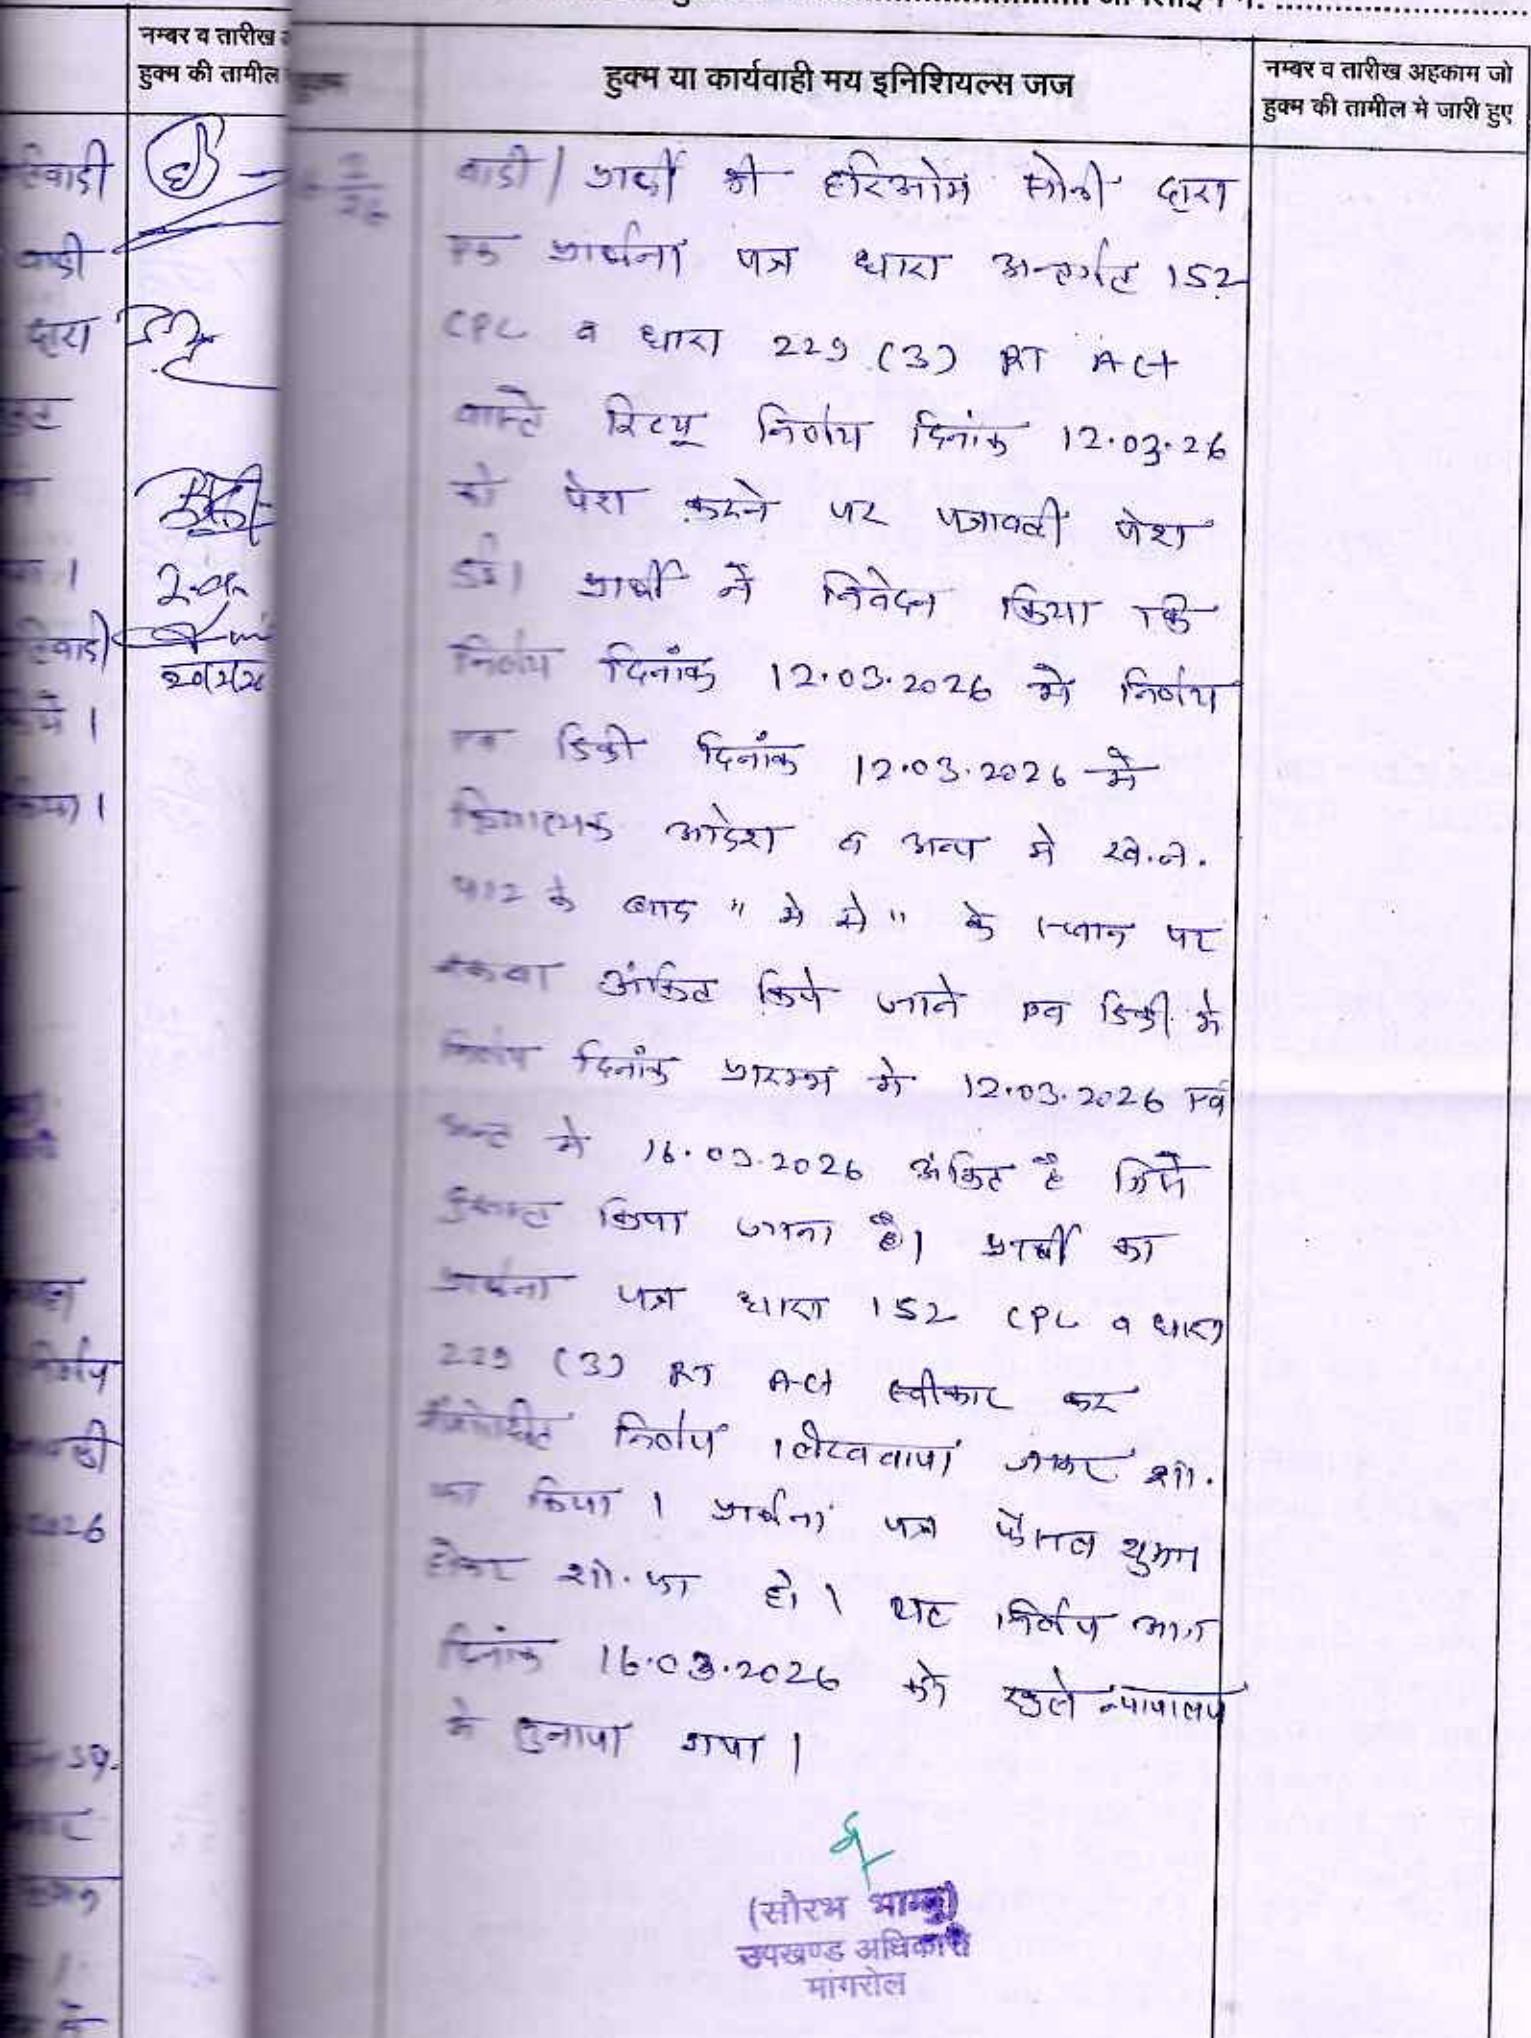 नम्बर व तारीख
हुक्म की तामील
हुक्म या कार्यवाही मय इनिशियल्स जज
नम्बर व तारीख अहकाम जो
हुक्म की तामील मे जारी हुए
वादी / प्रार्थी श्री हरिओम सोनी द्वारा
एक प्रार्थना पत्र धारा अन्तर्गत 152
CPC व धारा 229 (3) RT Act
वास्ते रिव्यू निर्णय दिनांक 12.03.26
को पेश करने पर पत्रावली पेश
हुई। प्रार्थी ने निवेदन किया कि
निर्णय दिनांक 12.03.2026 मे निर्णय
एवं डिक्री दिनांक 12.03.2026 मे
क्रियात्मक आदेश व अन्य मे ख.न.
के बाद "मे से" के स्थान पर
रकबा अंकित किये जाने एवं डिक्री मे
निर्णय दिनांक प्रारम्भ मे 12.03.2026 एवं
अन्त मे 16.03.2026 अंकित है जिसे
दुरूस्त किया जाना है। प्रार्थी का
प्रार्थना पत्र धारा 152 CPC व धारा
229 (3) RT Act स्वीकार कर
संशोधित निर्णय लिखवाया जाकर शा.
किया। प्रार्थना पत्र फैसल शुमार
होकर शा. फा हो। यह निर्णय आज
दिनांक 16.03.2026 को खुले न्यायालय
मे सुनाया गया।
(सौरभ भाम्बू)
उपखण्ड अधिकारी
मांगरोल
तिवादी
वादी
द्वारा
निर्णय
2026